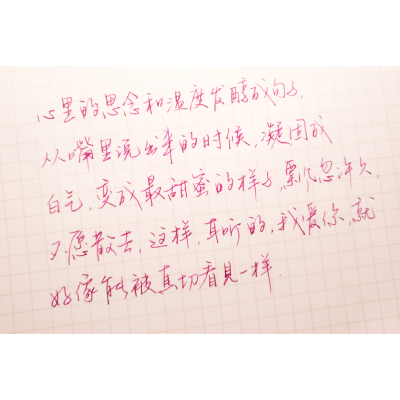 心里的思念和温度发醇成句子,
从嘴里说出来的时候,凝固成
白气,变成最甜蜜的样子,飘忽许久,
不愿散去,这样,耳听的,我爱你,就
好像能被真切看見一样.